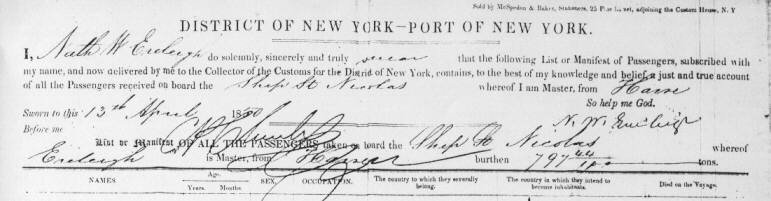 Sold by McSpedon & Baker, Stationers, 25 Pine Street, adjoining the Custom House, N. Y
DISTRICT OF NEW YORK—PORT OF NEW YORK.
I, Nath W Eveleigh do solemnly, sincerely and truly swear that the following List or Manifest of Passengers, subscribed with
my name, and now delivered by me to the Collector of the Customs for the District of New York, contains, to the best of my knowledge and belief, a just and true account
of all the Passengers received on board the Ship St Nicolas whereof I am Master, from Havre
So help me God.
Sworn to this 13th April 1850
N. W. Eveleigh
Before me
List or Manifest OF ALL THE PASSENGERS taken on board the Ship St Nicolas whereof
Eveleigh is Master, from Havre burthen 797 44 tons.
NAMES. Age. Years. Months. SEX. OCCUPATION. The country to which they severally belong. The country in which they intend to become inhabitants. Died on the Voyage.